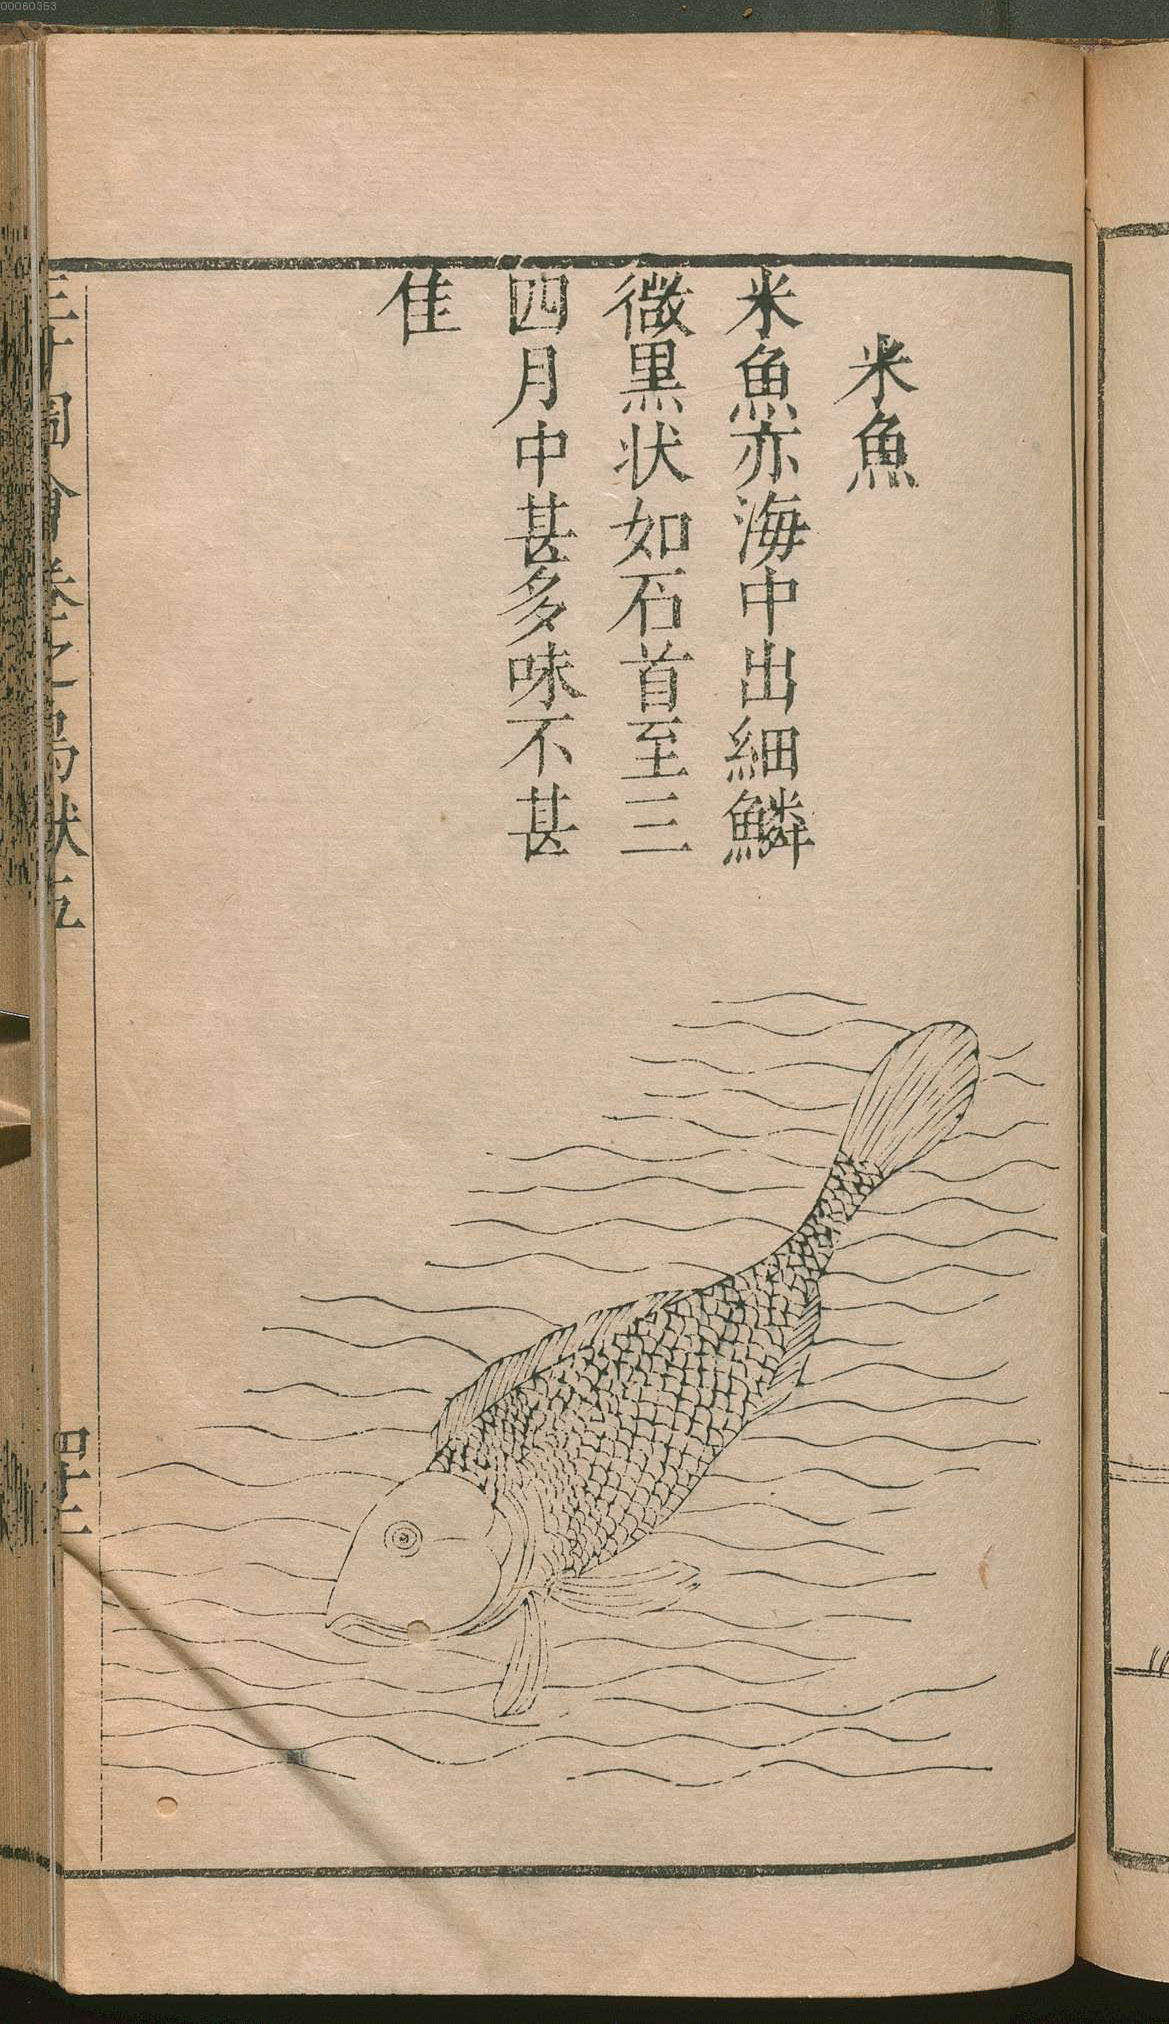 米魚
米魚亦海中出細鱗
微黒状如石首至三
四月中甚多味不甚
佳
三才圖會卷之鳥獸五
四十三
00060353